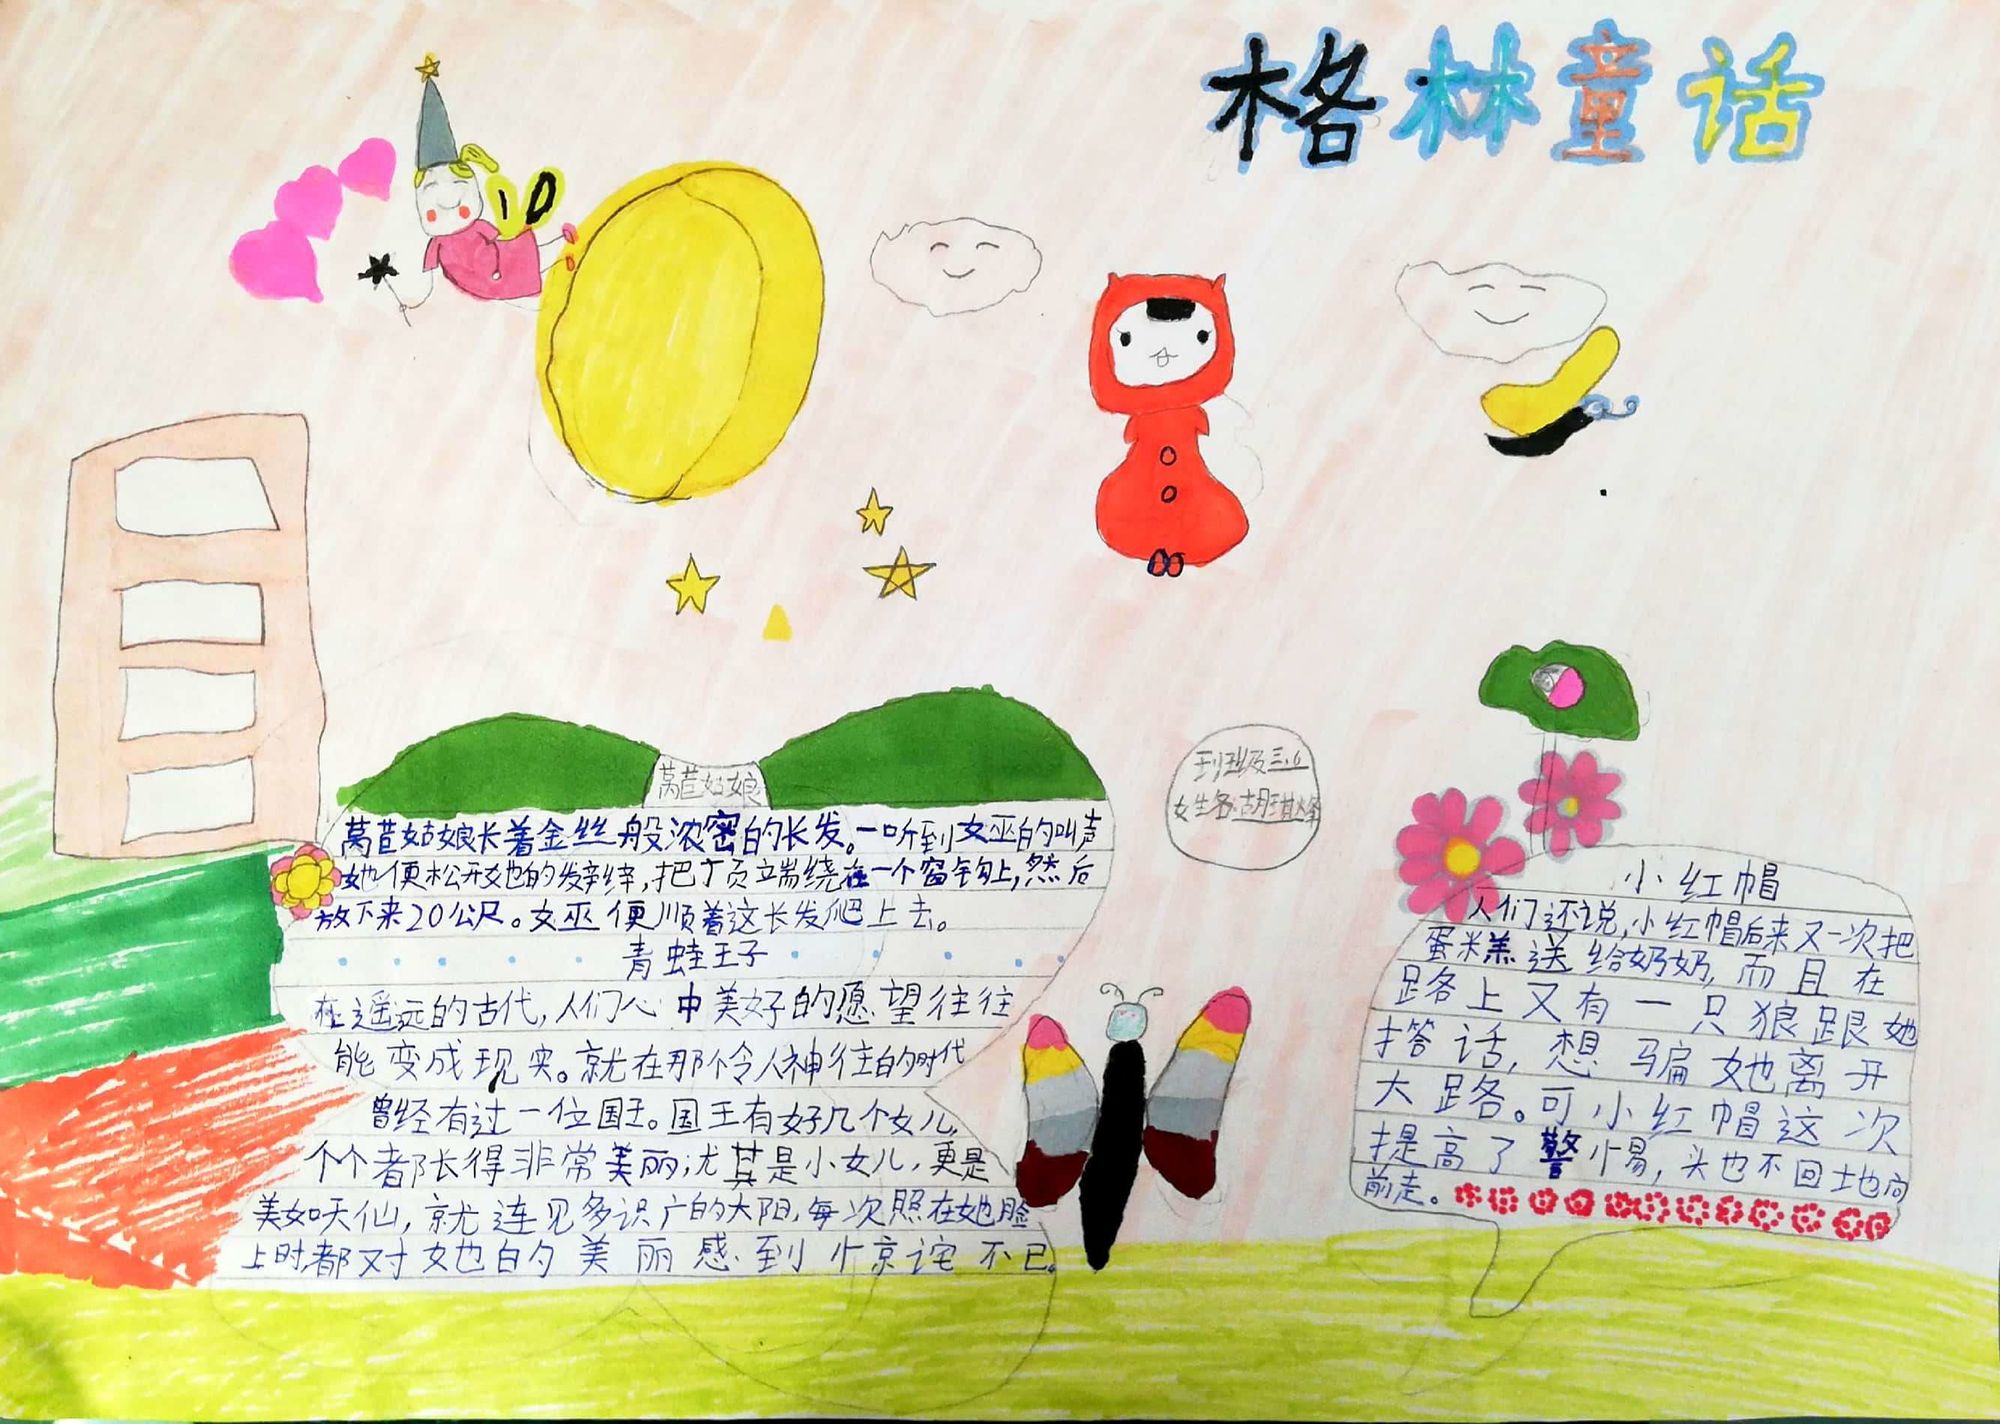 格林童话
莴苣姑娘
莴苣姑娘长着金丝般浓密的长发。一听到女巫的叫声
她便松开她的发辫,把顶端绕在一个窗钩上,然后
放下来20公尺。女巫便顺着这长发爬上去。
青蛙王子
在遥远的古代,人们心中美好的愿望往往
能变成现实。就在那个令人神往的时代
曾经有过一位国王。国王有好几个女儿,
个个都长得非常美丽;尤其是小女儿,更是
美如天仙,就连见多识广的太阳,每次照在她脸
上时,都对她的美丽感到惊诧不已。
班级三.6
姓名:胡琪
小红帽
人们还说,小红帽后来又一次把
蛋糕送给奶奶,而且在
路上又有一只狼跟她
搭话,想骗她离开
大路。可小红帽这次
提高了警惕,头也不回地向
前走。